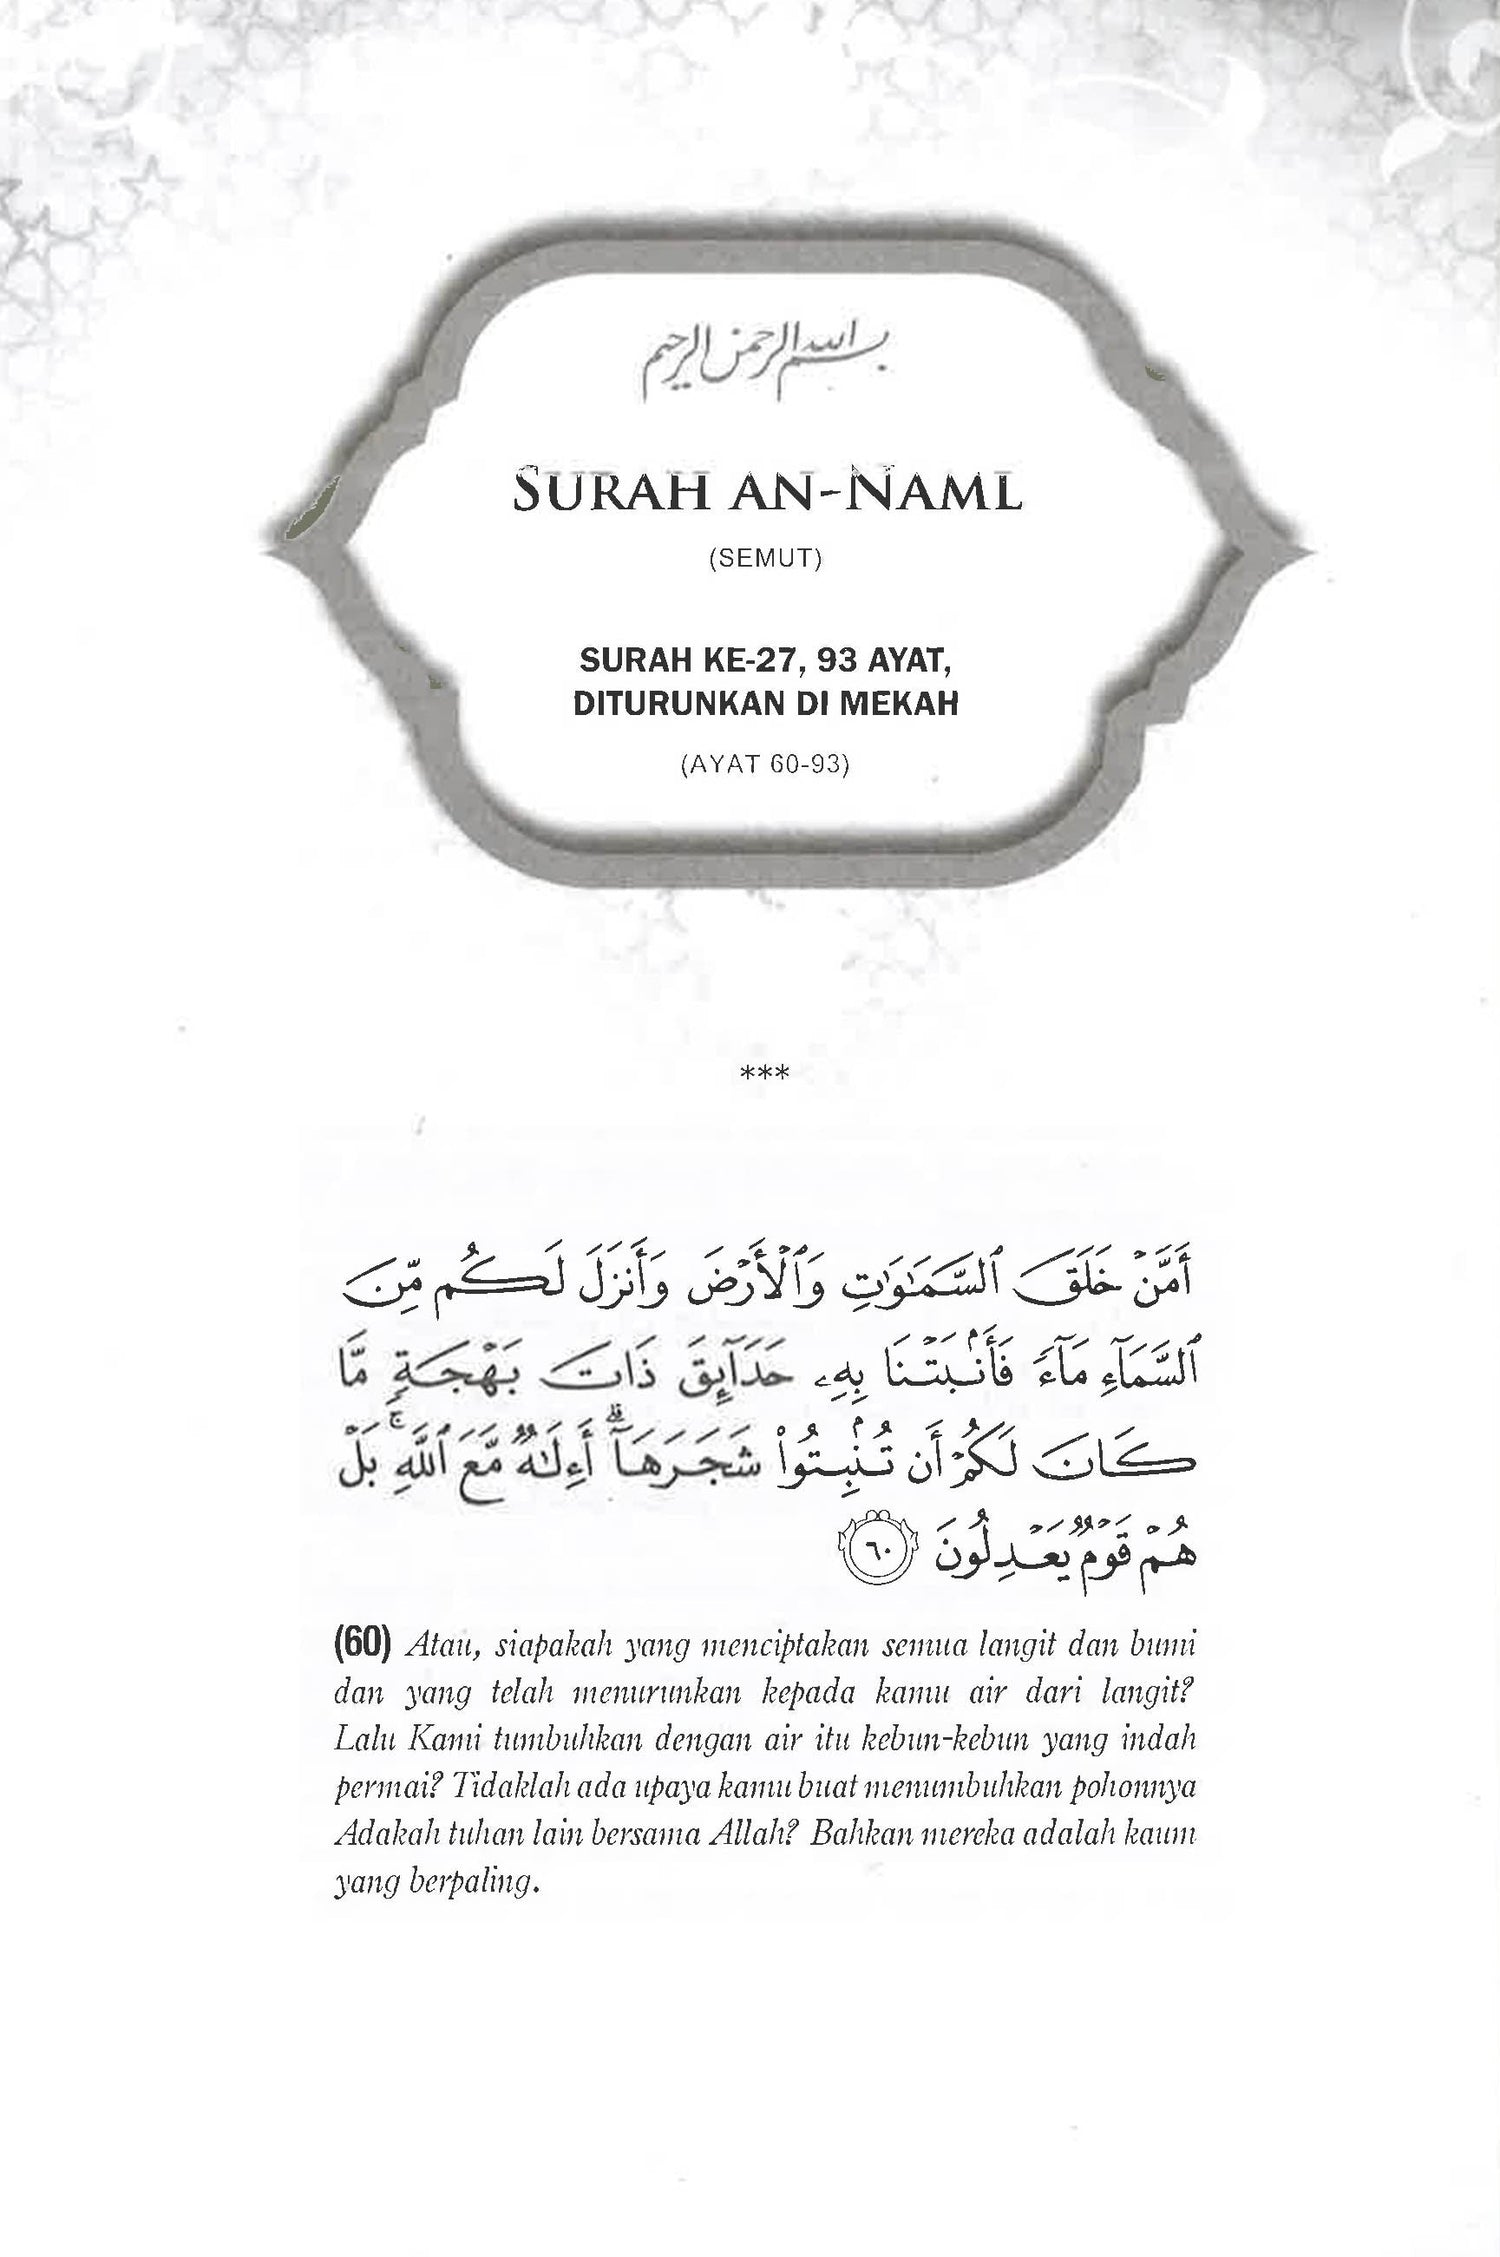 بسم الله الرحمن الرحيم
SURAH AN-NAML
(SEMUT)
SURAH KE-27, 93 AYAT,
DITURUNKAN DI MEKAH
(AYAT 60-93)
***
أَمَّنْ خَلَقَ ٱلسَّمَٰوَٰتِ وَٱلْأَرْضَ وَأَنزَلَ لَكُم مِّنَ
ٱلسَّمَآءِ مَآءً فَأَنۢبَتْنَا بِهِۦ حَدَآئِقَ ذَاتَ بَهْجَةٍ مَّا
كَانَ لَكُمْ أَن تُنۢبِتُوا۟ شَجَرَهَآ ۗ أَءِلَٰهٌ مَّعَ ٱللَّهِ ۚ بَلْ
هُمْ قَوْمٌ يَعْدِلُونَ ٦٠
(60) Atau, siapakah yang menciptakan semua langit dan bumi
dan yang telah menurunkan kepada kamu air dari langit?
Lalu Kami tumbuhkan dengan air itu kebun-kebun yang indah
permai? Tidaklah ada upaya kamu buat menumbuhkan pohonnya
Adakah tuhan lain bersama Allah? Bahkan mereka adalah kaum
yang berpaling.